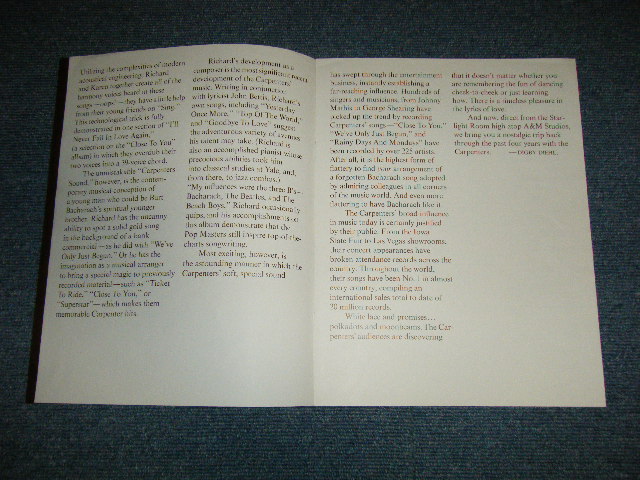 Utilizing the complexities of modern
acoustical engineering, Richard
and Karen together create all of the
harmony voices heard in these
songs—oops!—they have a little help
from their young friends on "Sing."
This technological trick is fully
demonstrated in one section of "I'll
Never Fall in Love Again,"
(a selection on the "Close To You"
album) in which they overdub their
two voices into a 39-voice chord.
The unmistakable "Carpenters
Sound," however, is the contem-
porary musical conception of
a young man who could be Burt
Bacharach's spiritual younger
brother. Richard has the uncanny
ability to spot a solid gold song
in the background of a bank
commercial—as he did with "We've
Only Just Begun." Or he has the
imagination as a musical arranger
to bring a special magic to previously
recorded material—such as "Ticket
To Ride," "Close To You," or
"Superstar"—which makes them
memorable Carpenter hits.
Richard's development as a
composer is the most significant recent
development of the Carpenters'
music. Writing in conjunction
with lyricist John Bettis, Richard's
own songs, including "Yesterday
Once More," "Top Of The World,"
and "Goodbye To Love," suggest
the adventurous variety of avenues
his talent may take. (Richard is
also an accomplished pianist whose
precocious abilities took him
into classical studies at Yale, and,
from there, to jazz combos.)
"My influences were the three B's—
Bacharach, The Beatles, and The
Beach Boys," Richard occasionally
quips, and his accomplishments on
this album demonstrate that the
Pop Masters still inspire top-of-the-
charts songwriting.
Most exciting, however, is
the astounding manner in which the
Carpenters' soft, special sound
has swept through the entertainment
business, instantly establishing a
far-reaching influence. Hundreds of
singers and musicians, from Johnny
Mathis to George Shearing have
picked up the trend by recording
Carpenters' songs—"Close To You,"
"We've Only Just Begun," and
"Rainy Days And Mondays" have
been recorded by over 225 artists.
After all, it is the highest form of
flattery to find your arrangement of
a forgotten Bacharach song adopted
by admiring colleagues in all corners
of the music world. And even more
flattering to have Bacharach like it.
The Carpenters' broad influence
in music today is certainly justified
by their public. From the Iowa
State Fair to Las Vegas showrooms,
their concert appearances have
broken attendance records across the
country. Throughout the world,
their songs have been No. 1 in almost
every country, compiling an
international sales total to date of
30 million records.
White lace and promises...
polkadots and moonbeams. The Car-
penters' audiences are discovering
that it doesn't matter whether you
are remembering the fun of dancing
cheek-to-cheek or just learning
how. There is a timeless pleasure in
the lyrics of love.
And now, direct from the Star-
light Room high atop A&M Studios,
we bring you a nostalgic trip back
through the past four years with the
Carpenters. —DIGBY DIEHL